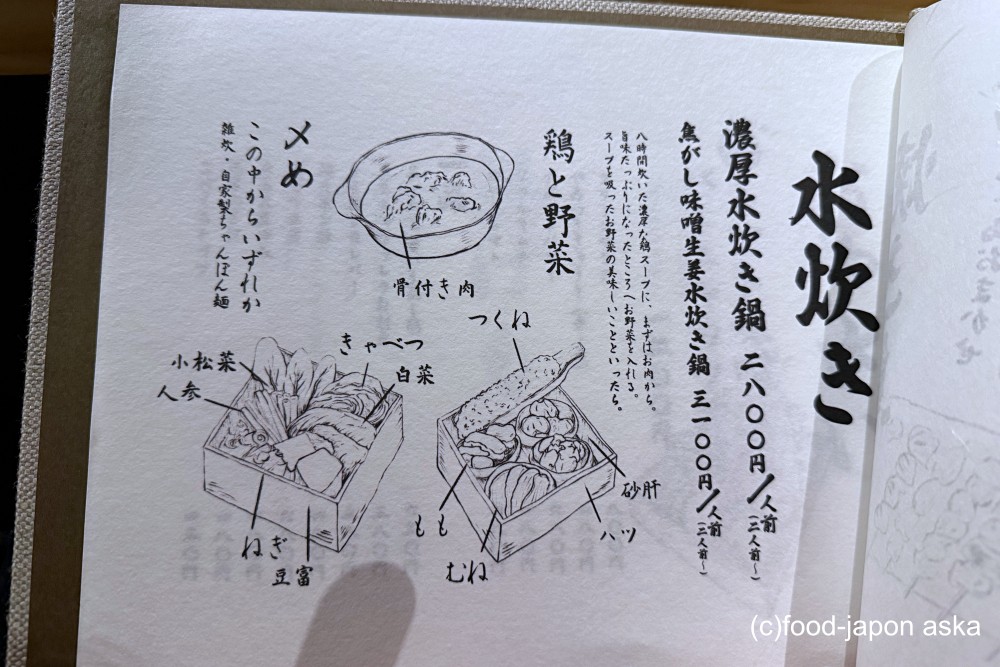 水炊き
濃厚水炊き鍋 二八〇〇円/人前(二人前〜)
焦がし味噌生姜水炊き鍋 三一〇〇円/人前(二人前〜)
八時間炊いた濃厚な鶏スープに、まずはお肉から。
旨味たっぷりになったところへお野菜を入れる。
スープを吸ったお野菜の美味しいことといったら。
鶏と野菜
骨付き肉
つくね
砂肝
ハツ
むね
もも
きゃべつ
白菜
小松菜
人参
ねぎ
豆富
〆め
この中からいずれか
雑炊・自家製ちゃんぽん麺
(c)food-japon aska